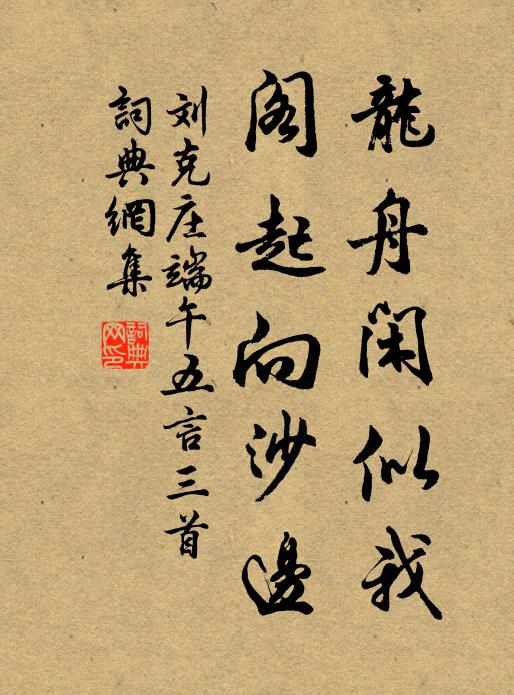 龍舟閑似我
閣起向沙邊
刘克庄端午五言三首
詞典網集
詞典網印